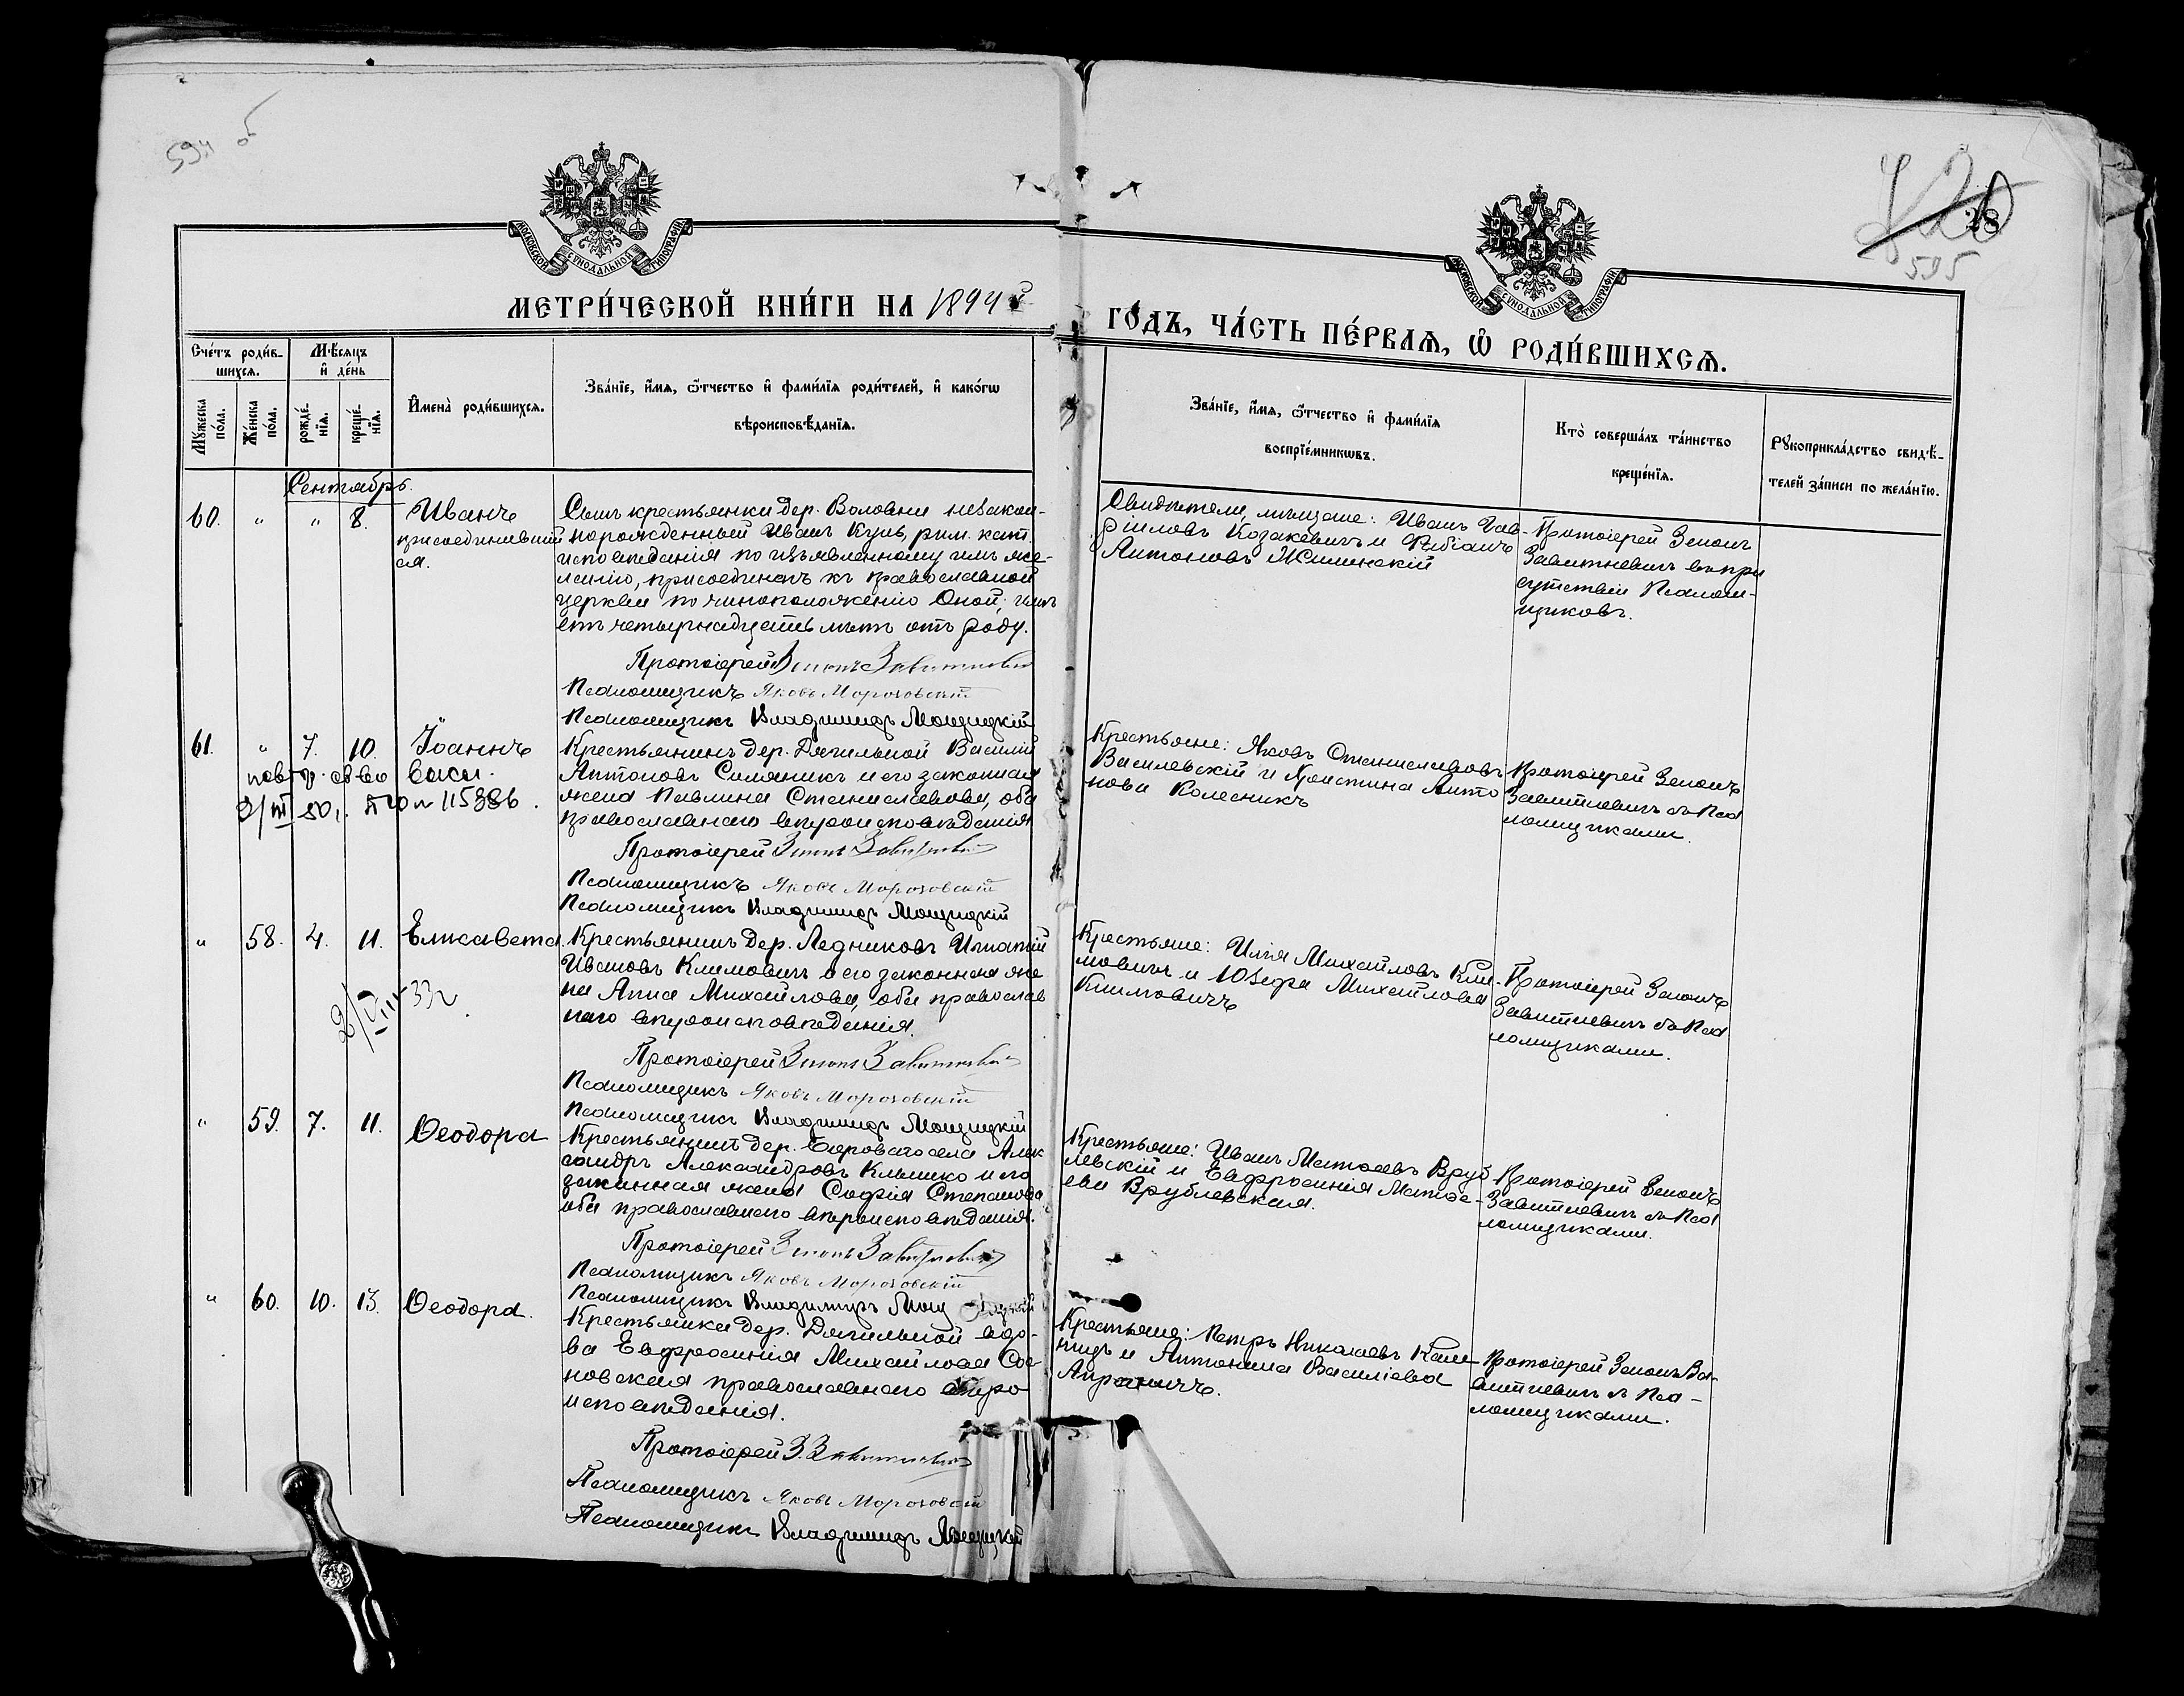 594 об
28
595
МОСКОВСКОЙ СУНОДАЛЬНОЙ ТИПОГРАФІИ
МОСКОВСКОЙ СУНОДАЛЬНОЙ ТИПОГРАФІИ
МЕТРИ́ЧЕСКОЙ КНИ́ГИ НА 1894й
ГО́ДЪ, ЧА́СТЬ ПЕ́РВАѦ, Ѡ РОДИ́ВШИХСѦ.
Сче́тъ роди́в-
шихсѧ.
Мѣ́сѧцъ
и҆ де́нь
Мꙋ́жеска
по́ла.
Же́нска
по́ла.
рожде́-
нїѧ.
креще́-
нїѧ.
И҆мена̀ роди́вшихсѧ.
Зва́нїе, и҆́мѧ, ѻ҆́тчество и҆ фами́лїѧ роди́телей, и҆ како́гѡ
вѣроисповѣ́данїѧ.
Зва́нїе, и҆́мѧ, ѻ҆́тчество и҆ фами́лїѧ
воспрїе́мникѡвъ.
Кто̀ соверша́лъ та́инство
креще́нїѧ.
Рꙋкоприкла́дство свидѣ́-
телей за́писи по жела́нїю.
Сентябрь.
60. " " 8. Иванъ
присоединивший
ся.
Сынъ крестьянки дер. Воловни незакон-
норожденный Иванъ Куль, рим. кат.
исповѣданія по изъявленному имъ же-
ланію, присоединенъ къ православной
церкви по чиноположенію Оной; имѣ
етъ четырнадцать лѣтъ отъ роду.
Протоіерей Зенонъ Завитневичъ
Псаломщикъ Яковъ Морозовскій
Псаломщикъ Владимиръ Мощицкій
Свидѣтели мѣщане: Иванъ Гав-
ріиловъ Козакевичъ и Фабіанъ
Антоновъ Жилинскій
Протоіерей Зенонъ
Завитневичъ въ при
сутствіи Псалом-
щиковъ.
61. " 7. 10. Іоаннъ
пов-г. св во выси.
2/III 50г. № 115886.
Крестьянинъ дер. Дягильной Василій
Антоновъ Симаникъ и его законная
жена Павлина Станиславова, оба
православнаго вѣроисповѣданія
Протоіерей Зенонъ Завитневичъ
Псаломщикъ Яковъ Морозовскій
Псаломщикъ Владимиръ Мощицкій
Крестьяне: Яковъ Станиславовъ
Василевскій и Христина Анто
нова Колесникъ
Протоіерей Зенонъ
Завитневичъ съ Пса
ломщиками.
" 58. 4. 11. Елисавета.
2/VIII 33г.
Крестьянинъ дер. Ледниковъ Игнатій
Ивановъ Климовичъ и его законная же
на Анна Михайлова, оба православ
наго вѣроисповѣданія.
Протоіерей Зенонъ Завитневичъ
Псаломщикъ Яковъ Морозовскій
Псаломщикъ Владимиръ Мощицкій
Крестьяне: Илія Михайловъ Кли-
мовичъ и Юзефа Михайлова
Климовичъ
Протоіерей Зенонъ
Завитневичъ съ Пса
ломщиками.
" 59. 7. 11. Ѳеодора
Крестьянинъ дер. Сѣроватосела Алек
сандръ Александровъ Климко и его
законная жена Софія Степанова
оба православнаго вѣроисповѣданія.
Протоіерей Зенонъ Завитневичъ
Псаломщикъ Яковъ Морозовскій
Псаломщикъ Владимиръ Мощицкій
Крестьяне: Иванъ Матѳеевъ Вруб
левскій и Евфросинія Матѳе-
ева Врублевская.
Протоіерей Зенонъ
Завитневичъ съ Пса
ломщиками.
" 60. 10. 13. Ѳеодора.
Крестьянка дер. Дягильной вдо-
ва Евфросинія Михайлова Сос
новская православнаго вѣро
исповѣданія.
Протоіерей З. Завитневичъ
Псаломщикъ Яковъ Морозовскій
Псаломщикъ Владимиръ Мощицкій
Крестьяне: Петръ Николаевъ
и Антонина Василіева
Протоіерей Зенонъ За-
витневичъ съ Пса-
ломщиками.